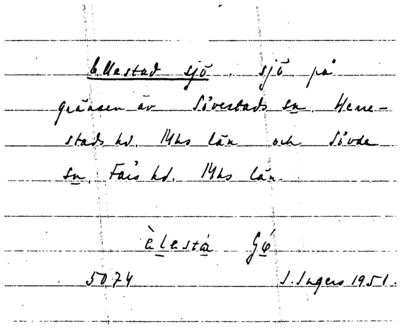 Ellestad sjö, sjö på
gränsen av Sövestads sn. Herre-
stads hd. Mhs län och Sövde
sn. Färs hd. Mhs län.
è̱lestá Gó̱
5074 I. Ingers 1951.